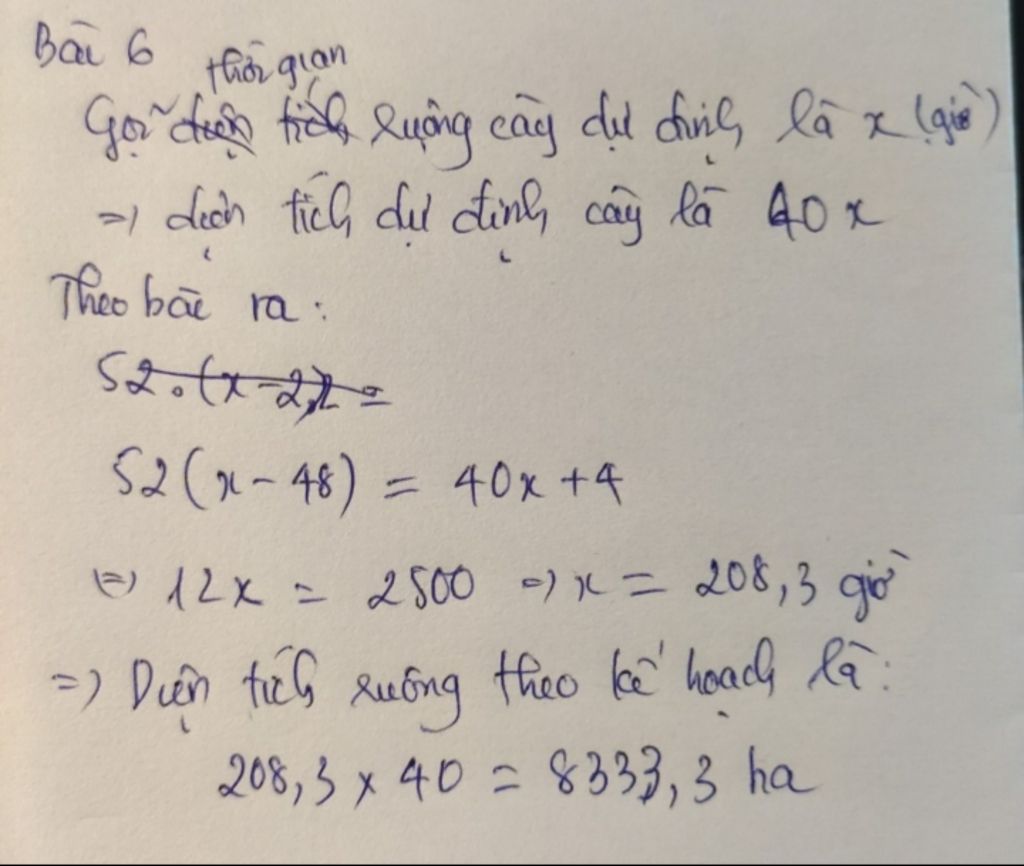 Bài 6
thời gian
Gọi diện tích ruộng cày dự định là x (giờ)
=> diện tích dự định cày là 40x
Theo bài ra :
52.(x-2).2 =
52(x - 48) = 40x + 4
<=> 12x = 2500 => x = 208,3 giờ
=> Diện tích ruộng theo kế hoạch là:
208,3 x 40 = 8333,3 ha